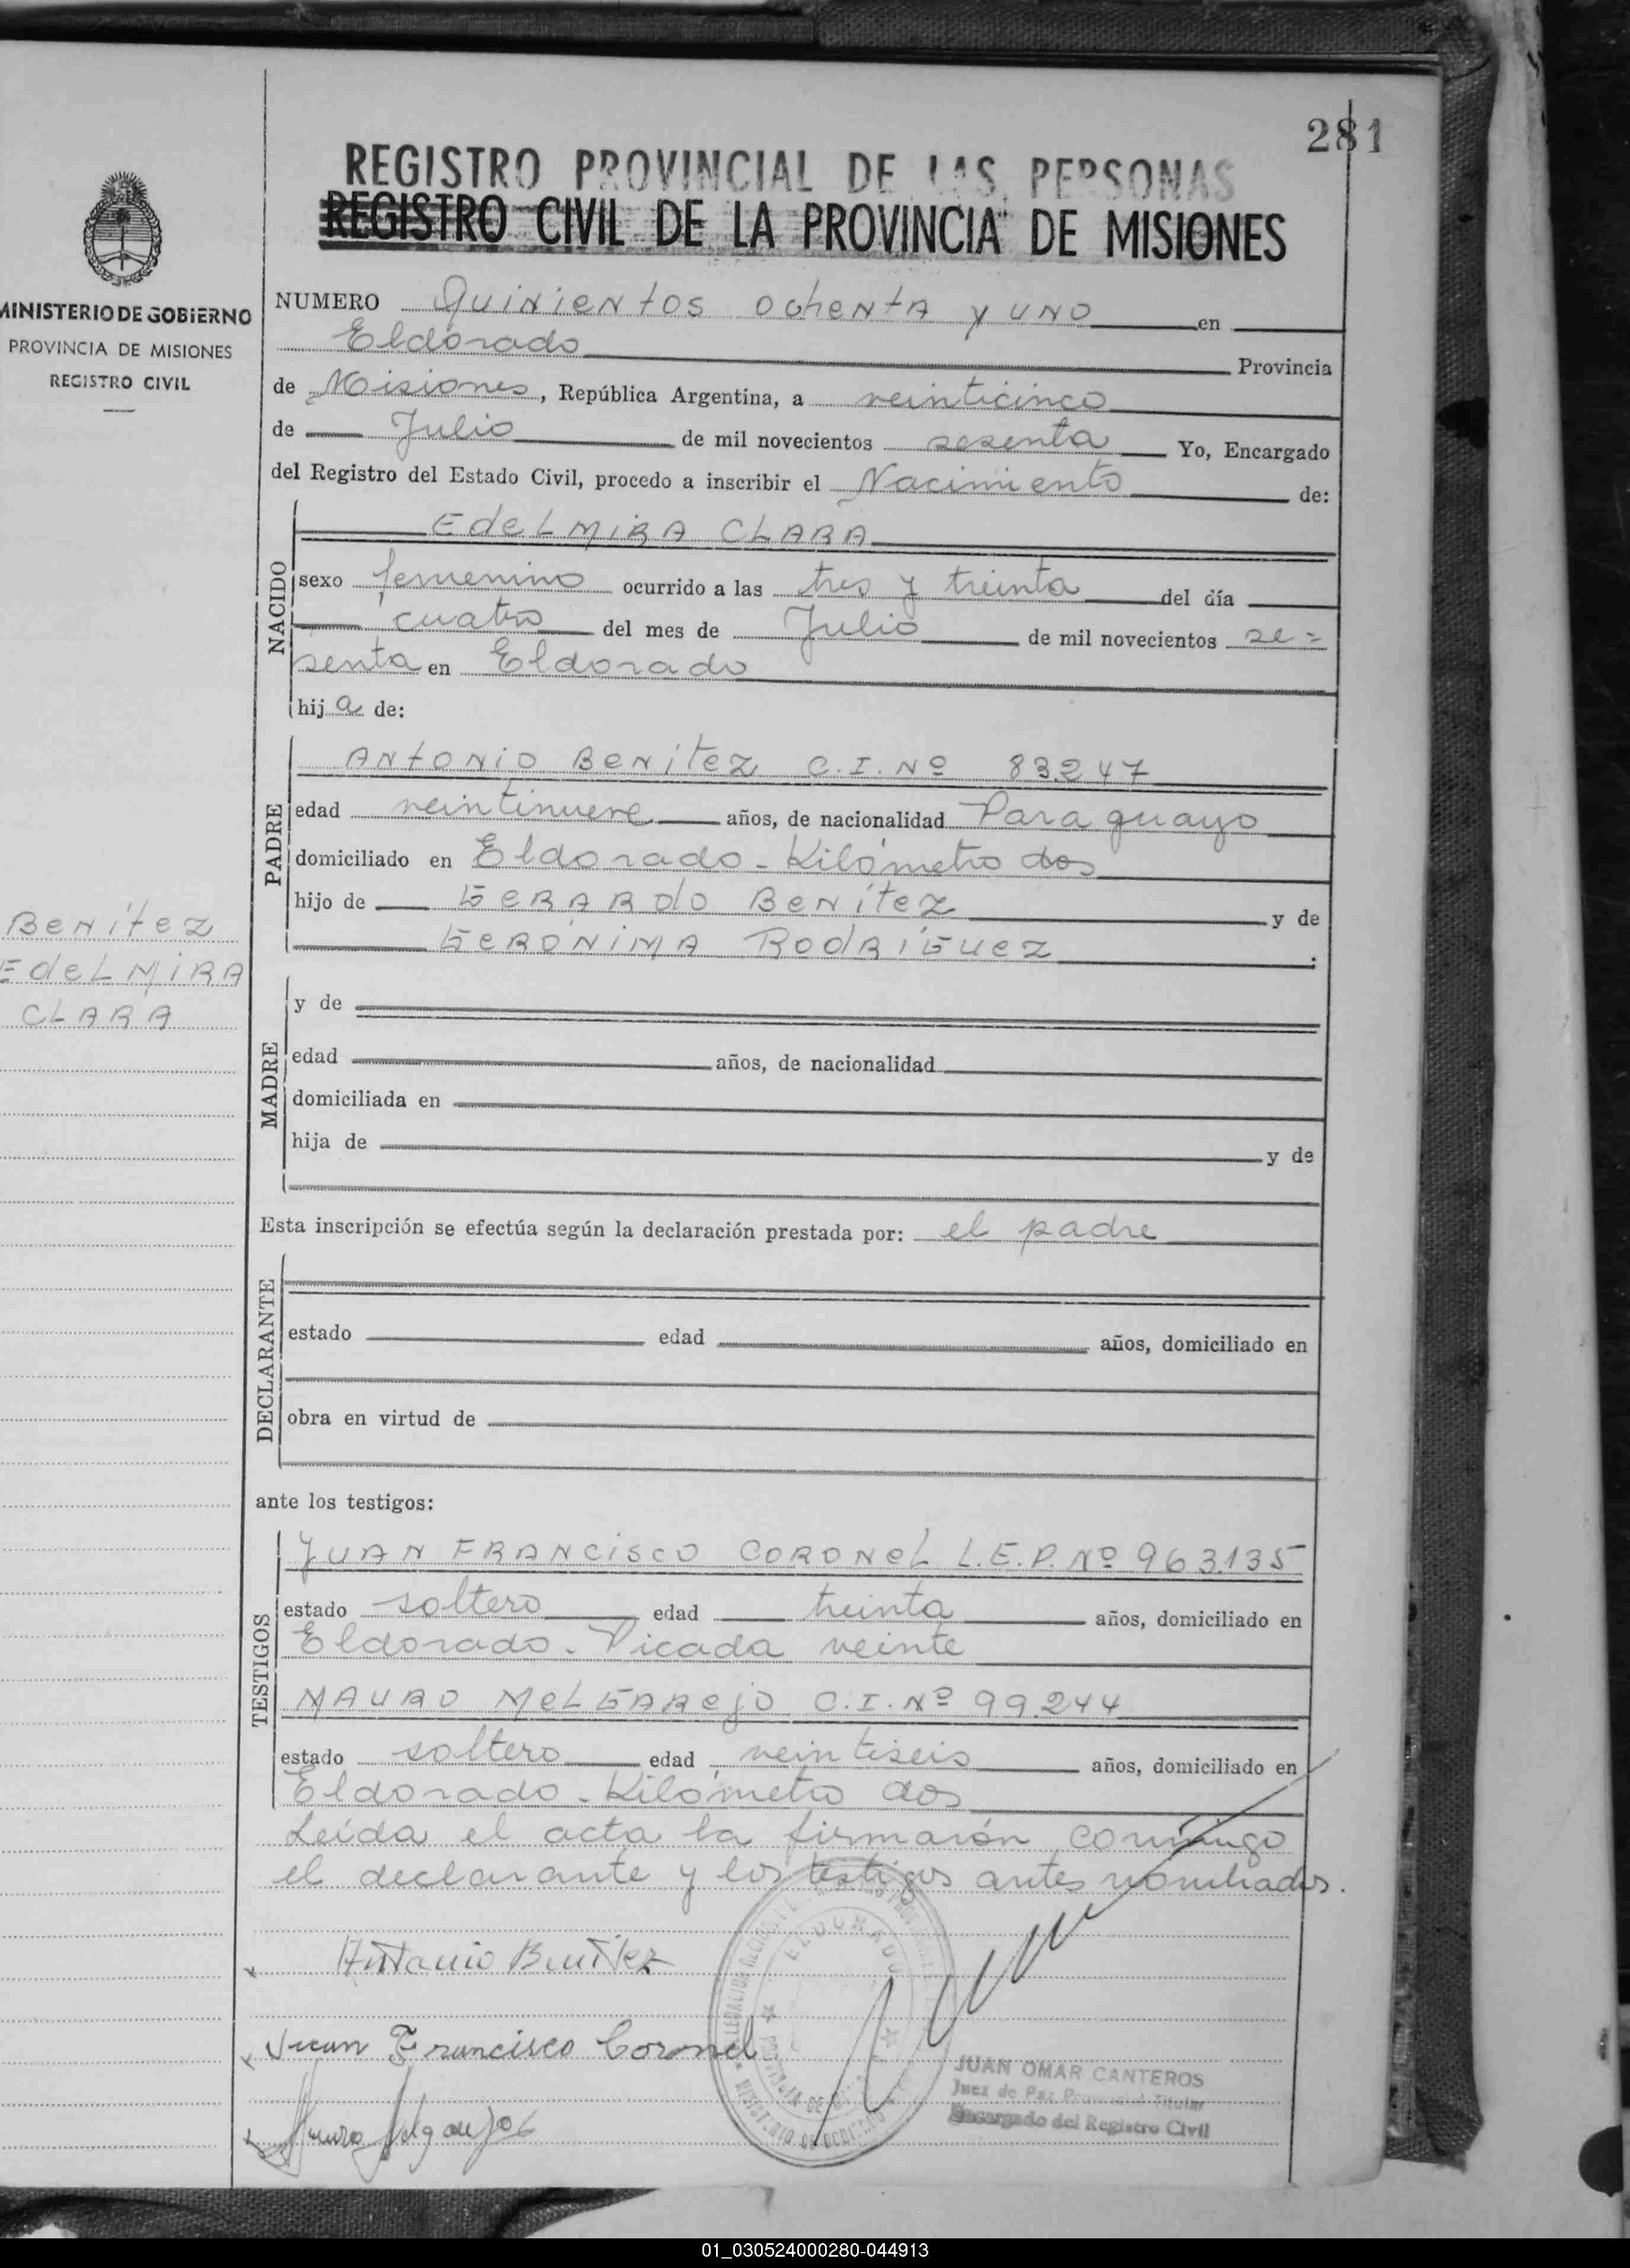 281
REGISTRO PROVINCIAL DE LAS PERSONAS
REGISTRO CIVIL DE LA PROVINCIA DE MISIONES
MINISTERIO DE GOBIERNO
PROVINCIA DE MISIONES
REGISTRO CIVIL
NUMERO Quinientos ochenta y uno en
Eldorado Provincia
de Misiones, República Argentina, a veinticinco
de Julio de mil novecientos sesenta Yo, Encargado
del Registro del Estado Civil, procedo a inscribir el Nacimiento de:
NACIDO
EdeLMiRA CLARA
sexo femenino ocurrido a las tres y treinta del día
cuatro del mes de Julio de mil novecientos se=
senta en Eldorado
hija de:
PADRE
ANtONiO BeNítez C.I.Nº 83247
edad veintinueve años, de nacionalidad Paraguayo
domiciliado en Eldorado - Kilómetro dos
hijo de GeRARdo BeNítez y de
GeRÓNiMA RodRíGuez.
Benítez
EdeLMiRA
CLARA
MADRE
y de
edad años, de nacionalidad
domiciliada en
hija de y de
Esta inscripción se efectúa según la declaración prestada por: el padre
DECLARANTE
estado edad años, domiciliado en
obra en virtud de
ante los testigos:
TESTIGOS
JUAN FRANCisCO CORONeL L.E.P.Nº 963.135
estado soltero edad treinta años, domiciliado en
Eldorado - Picada veinte
MAURO MeLGARejO C.I.Nº 99.244
estado soltero edad veintiseis años, domiciliado en
Eldorado - Kilómetro dos
Leída el acta la firmarón conmigo
el declarante y los testigos antes nombrados.
Antonio Benítez
Juan Francisco Coronel
ELDORADO
JUAN OMAR CANTEROS
Juez de Paz Titular
Encargado del Registro Civil
01_030524000280-044913